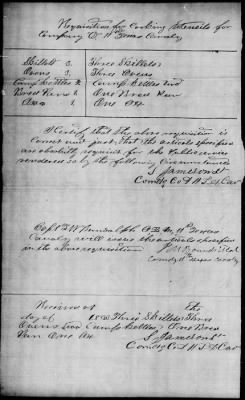 Requisition for Cooking Utensils for
Company D 11th Texas Cavalry
Skillets 3. Three Skillets
Ovens 3. Three Ovens
Camp Kettles 2 Camp Kettles two
Bread Pans 1. One Bread Pan
Axe 1. One Axe
I Certify that the above requisition is
correct and just; that the articles specified
are absolutely requisite for the Public service
rendered so by the following circumstances
S Jameson Lt
Comdg Co D 11 T Cav
Capt 11th Texas
Cavalry will issue the articles specified
in the above requisition
Comdg 11th Texas Cavalry
Received the
day of 186 Three Skillets Three
Ovens two Camp Kettles One Bread
Pan One Axe S Jameson Lt
Comdg Co D 11 T Cav